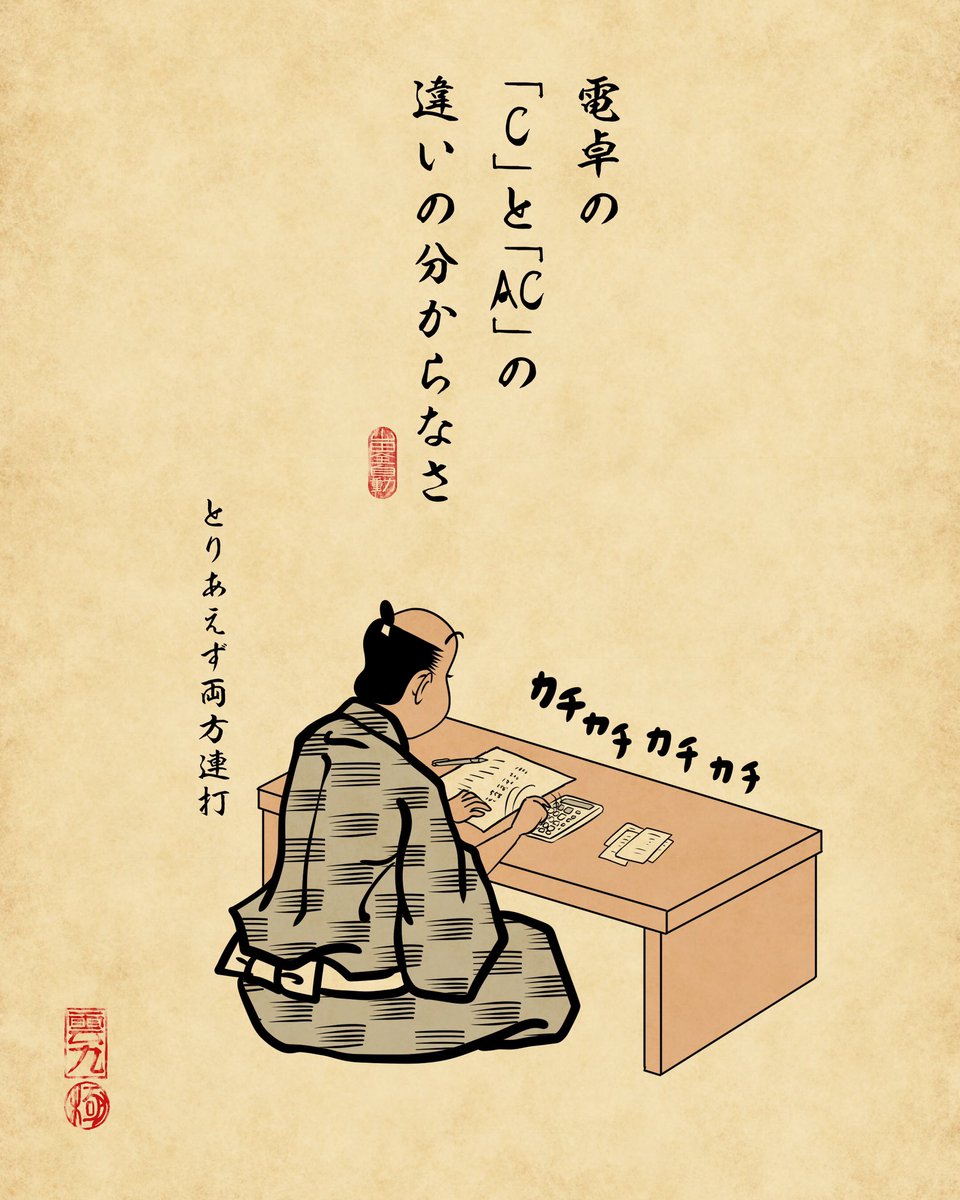 電卓の
「C」と「AC」の
違いの分からなさ
とりあえず両方連打
カチカチカチカチ